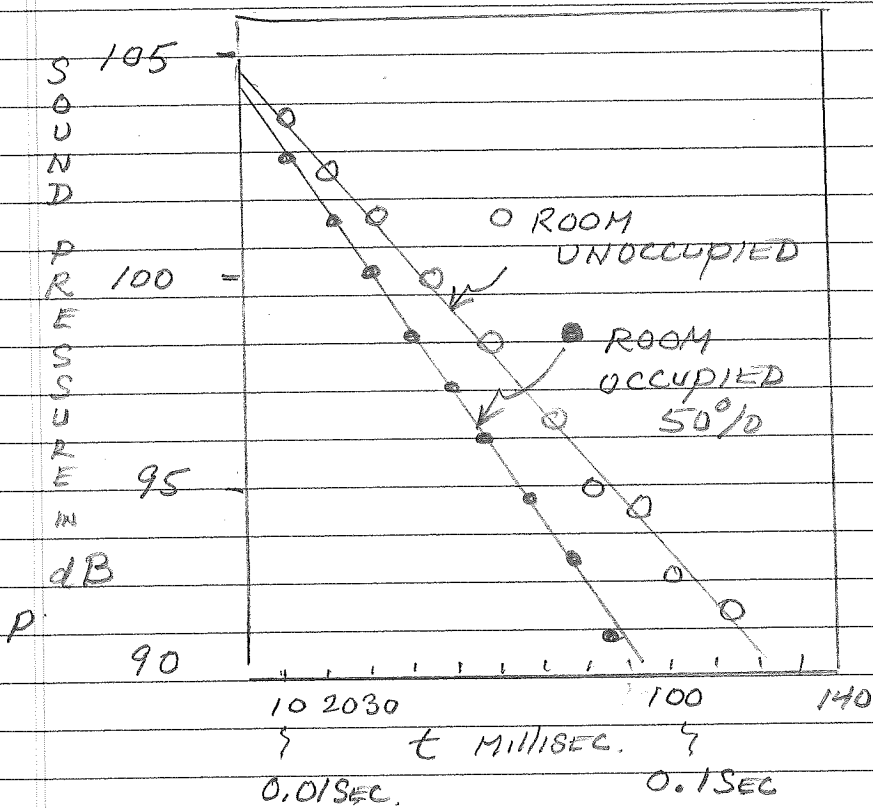 105
SOUND PRESSURE IN
dB
P
100
95
90
○ ROOM
UNOCCUPIED
● ROOM
OCCUPIED
50%
10 20 30 100 140
t MILLISEC.
0.01 SEC. 0.1 SEC